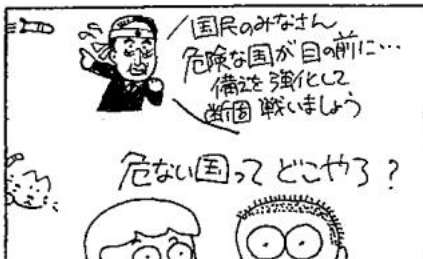 国民のみなさん
危険な国が目の前に…
備えを強化して
断固 戦いましょう
危ない国って どこやろ？